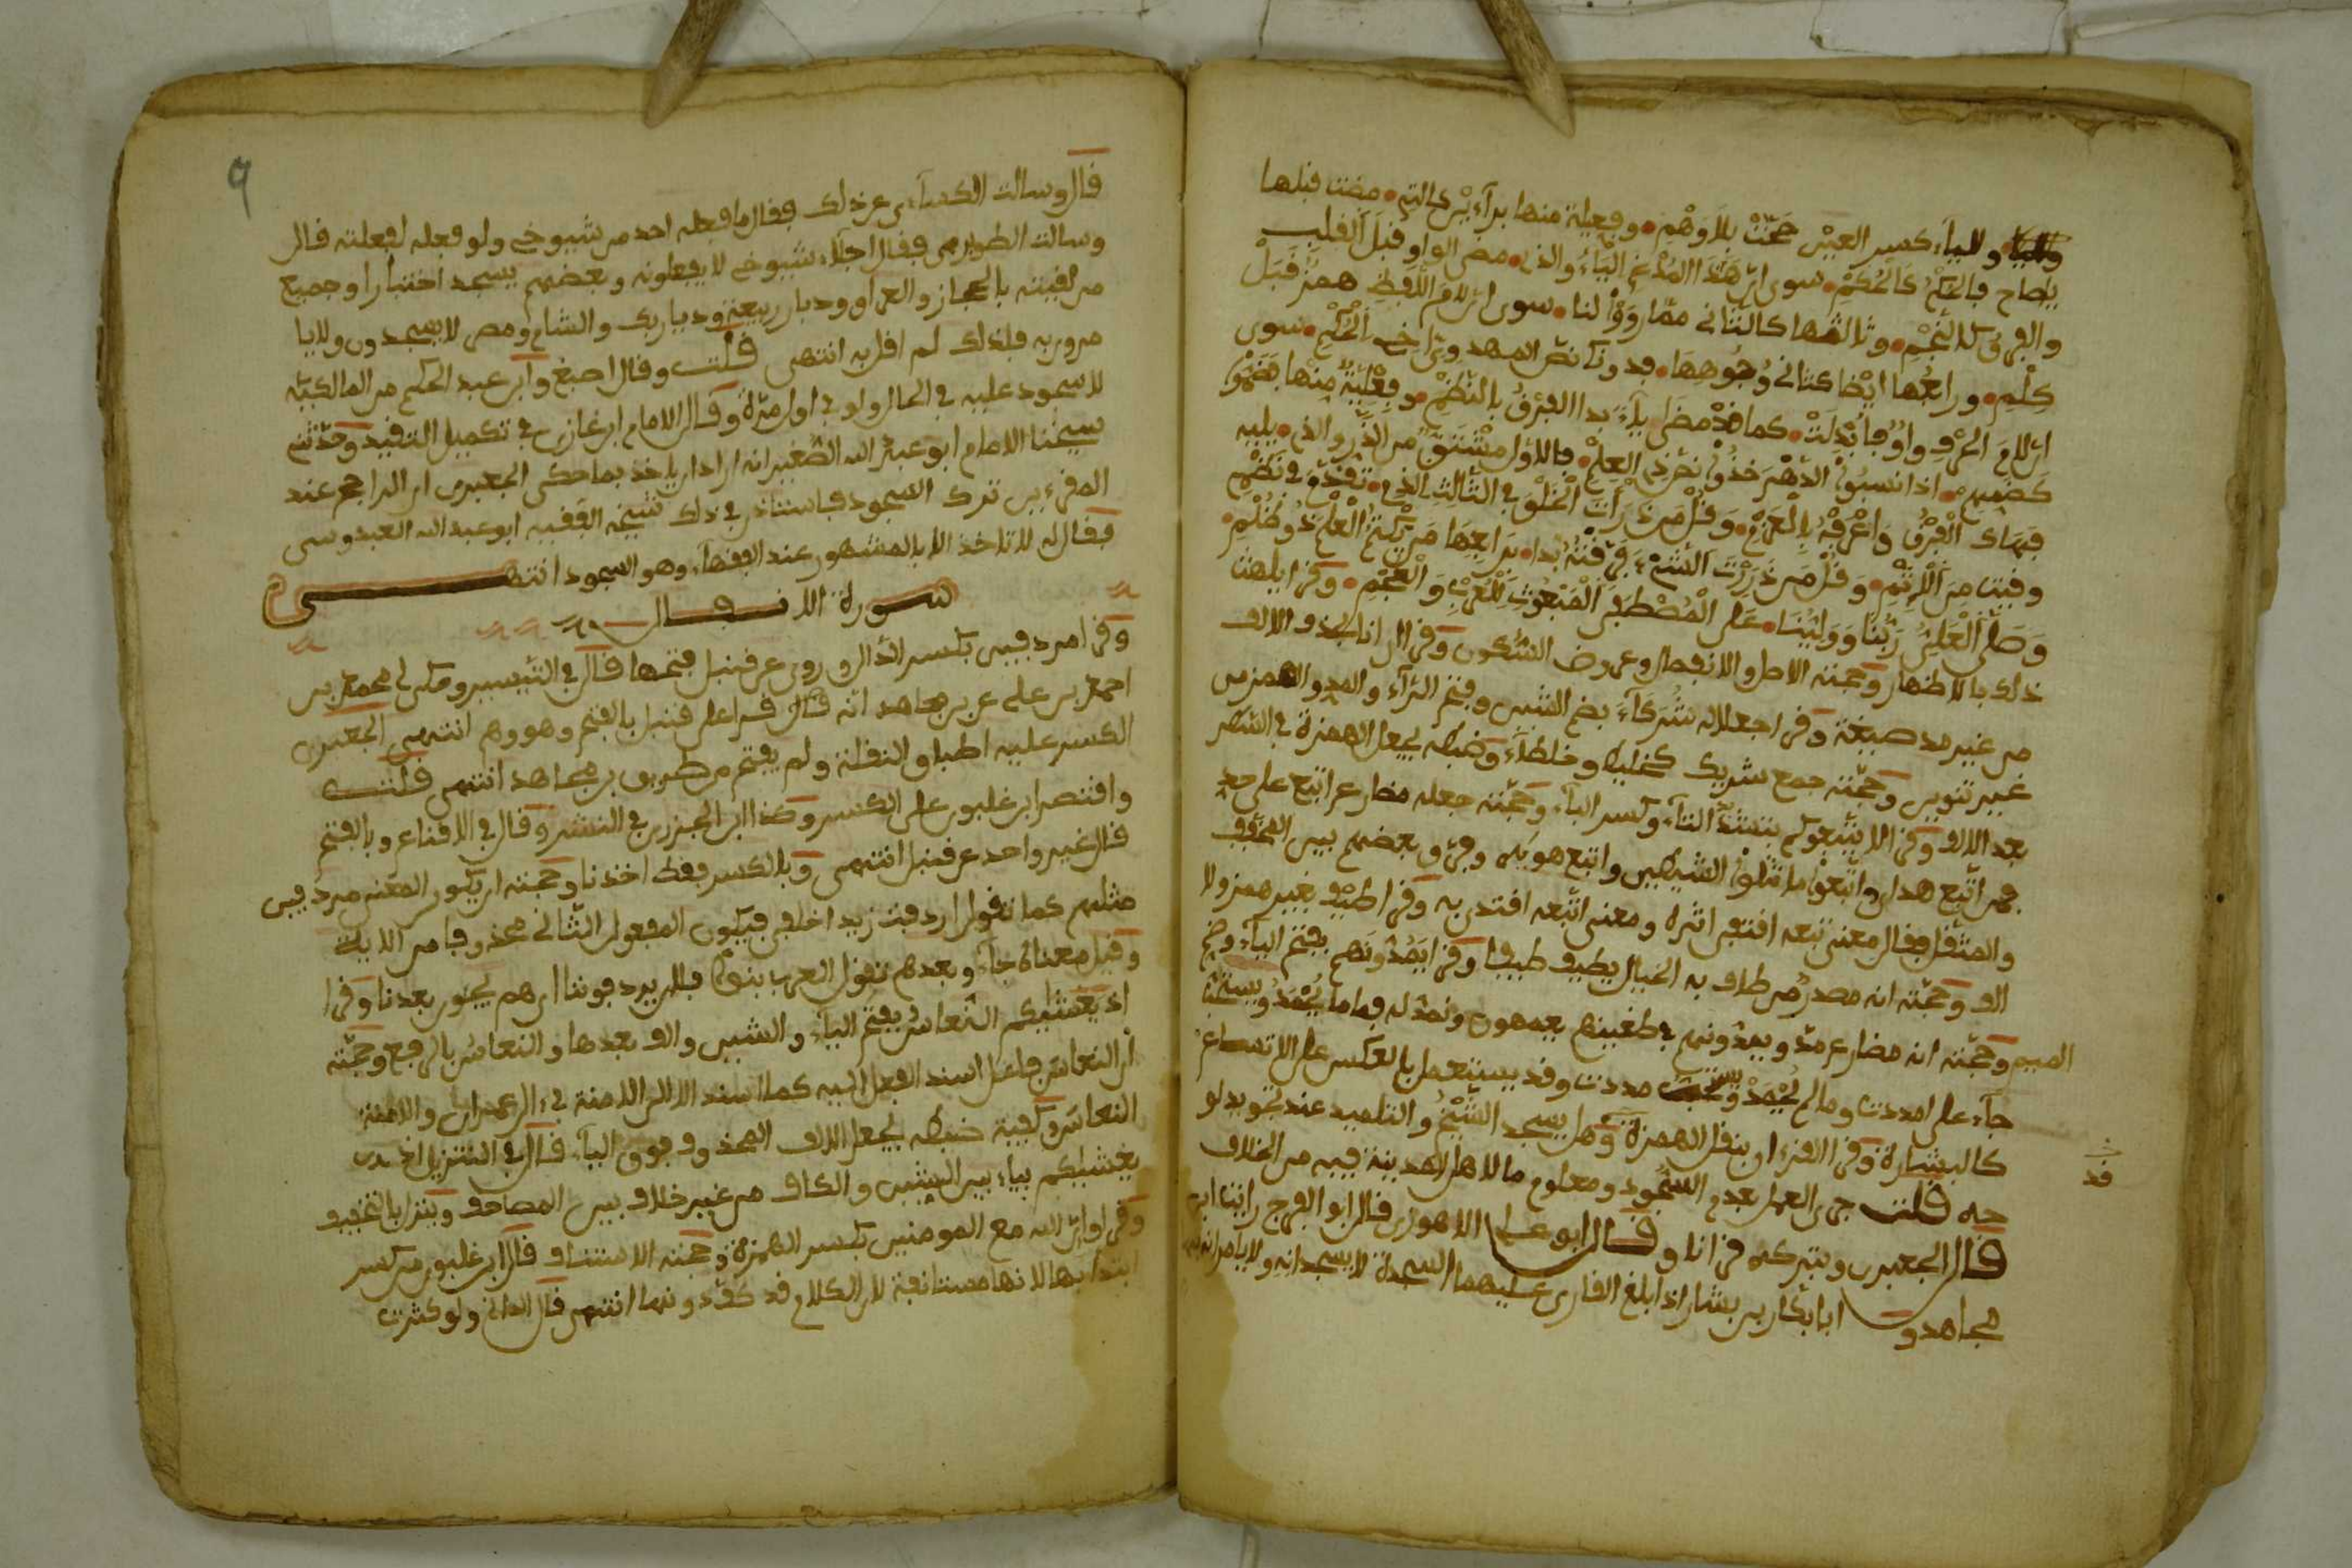 والياء كسر العين حجت بلا وهم وفعيلة منها براء يرى التم مضت قبلها
يصاح فالحكم كالحكم سوى ان هذا المدغم الياء والذي مضى الواو قبل القلب
والفرق كالنجم وثالثها كالثاني مما رووا لنا سوى ان لام اللفظ همز قبل
كلم ورابعها ايضا كثاني وجوهها فدونك نص المهدوي اخي الحكم سوى
ان لام الحرف واو فابدلت كما قد مضى ياء بدا الفرق بالنظم وفعلية منها بضم
كضمهم اذا نسبوا الدهر خذوا نخرذي العلم فالاول مشتق من الذر والذي يليه
فهاك الفرق واعرفه بالعزم وقل من ذرات الخلق في الثالث الذي تقدم في نظم
وفيت من الاثم وقل من ذررت الشيء فرقته بدا برابعها من يكتم العلم ذو ظلم
وصلى العلي ربنا وولينا على المصطفى المبعوث للعرب والعجم وقرا يلهث
ذلك بالاظهار وحجته الاصل والانفصال وعروض السكون وقرا ان انا بحذف الالف
من غير مد صيغة وقرا جعلا له شركاء بضم الشين وفتح الراء والمد والهمز من
غير تنوين وحجته جمع شريك كخليط وخلطاء وضبطه بجعل الهمزة في السطر
بعد الالف وقرا لا يتبعوكم بتشد التاء وكسر الباء وحجته جعله مضارع اتبع على حد
فمن اتبع هداي واتبعوا ما تتلوا الشيطين واتبع هويه وفرق بعضهم بين المخفف
والمثقل فقال معنى تبعه اقتفى اثره ومعنى اتبعه اقتدى به وقرا طيف بغير همز ولا
الف وحجته انه مصدر من طاف به الخيال يطيف طيفا وقرا يمدونهم بفتح الياء وضم
الميم وحجته انه مضارع مد ويمدونهم في طغينهم يعمهون ونمد له فما ما يحمد ويستحب
جاء على امددت وما لم يحمد ويستحب مددت وقد يستعمل بالعكس على الاتساع
كالبشارة وقرا القرءان بنقل الهمزة وهل يسجد الشيخ والتلميذ عند تجويد لو
حه قلت جرى العمل بعدم السجود ومعلوم ما لاهل المدينة فيه من الخلاف
قال الجعبري وبتركه قرانا وقال ابو علي الاهوازي قال ابو الفرج راينا ابن
مجاهد و ابا بكار بن بشار اذا بلغ القاري عليهما السجدة لا يسجدانه ولا يامرانه
قد
9
قال وسالت الكسائي عن ذلك فقال ما فعله احد من شيوخي ولو فعله لفعلته قال
وسالت الطويرمي فقال اجلاء شيوخي لا يفعلونه وبعضهم يسجد اختيارا وجميع
من لقيته بالحجاز والعراق وديار ربيعة وديار بكر والشام ومصر لا يسجدون ولا
مرور به فلذلك لم اقل به انتهى قلت وقال اصبغ وابن عبد الحكم من المالكية
لا سجود عليه في الحال ولو في اول مرة وقال الامام ابن غازي في تكميل التقييد وحدثني
شيخنا الامام ابو عبد الله الصغير انه اراد ان ياخذ بما حكى الجعبري ان الراجح عند
المقرءين ترك السجود فاستاذن في ذلك شيخه الفقيه ابو عبد الله العبدوسي
فقال له لا تاخذ الا بالمشهور عند الفقهاء وهو السجود انتهى
سورة الانفال
وقرا مردفين بكسر الدال وروي عن قنبل فتحها قال في التيسير وحكى لي محمد بن
احمد بن علي عن بن مجاهد انه قال قرا على قنبل بالفتح وهو وهم انتهى الجعبري
الكسر عليه اطباق النقلة ولم يفتح من طريق بن مجاهد انتهى قلت
واقتصر ابن غلبون على الكسر وكذا ابن الجزري في النشر وقال في الاقناع وبالفتح
قال غير واحد عن قنبل انتهى وبالكسر فقط اخذنا وحجته ان يكون المعنى مردفين
مثلهم كما تقول اردفت زيدا خلفي فيكون المفعول الثاني محذوفا من الاية
وقيل معناه جاءو بعدهم تقول العرب بنو فلان يردفوننا اي هم يجون بعدنا وقرا
اذ يغشيكم النعاس بفتح الياء والشين والف بعدها والنعاس بالرفع وحجته
ان النعاس فاعل اسند الفعل اليه كما اسند الى الامنة في ءال عمران والامنة
النعاس وكيفية ضبطه بجعل الالف المحذوف فوق الياء قال في التنزيل اذ
يغشيكم بياء بين الشين والكاف من غير خلاف بين المصاحف وينزل بالتخفيف
وقرا وان الله مع المومنين بكسر الهمزة وحجته الاستئناف قال ابن غلبون من كسر
ابتدا بها لانها مستانفة لان الكلام قد كفى دونها انتهى قال الداني ولو كثرت